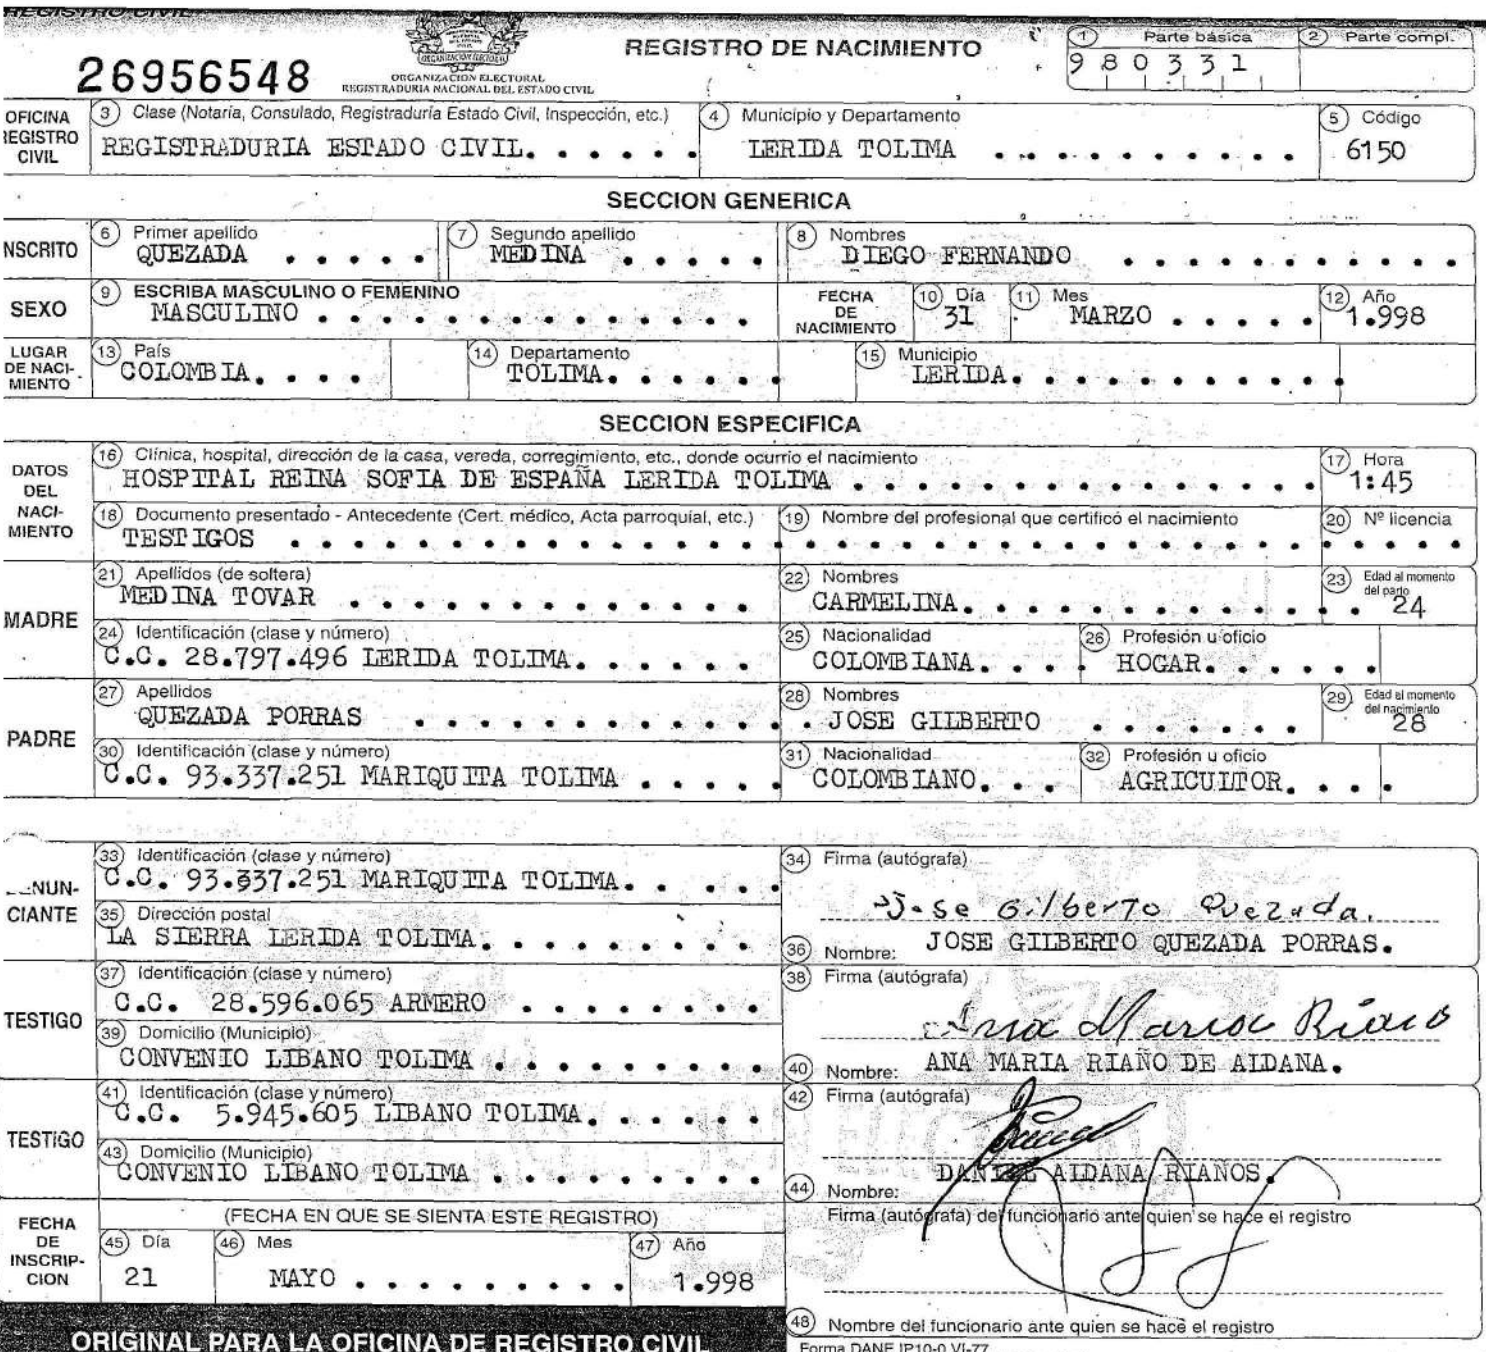 REGISTRO CIVIL
26956548
ORGANIZACION ELECTORAL
REGISTRADURIA NACIONAL DEL ESTADO CIVIL
REGISTRO DE NACIMIENTO
1 Parte básica
980331
2 Parte compl.
OFICINA REGISTRO CIVIL
3 Clase (Notaría, Consulado, Registraduría Estado Civil, Inspección, etc.)
REGISTRADURIA ESTADO CIVIL. . . . . .
4 Municipio y Departamento
LERIDA TOLIMA . . . . . . . . . . .
5 Código
6150
SECCION GENERICA
NSCRITO
6 Primer apellido
QUEZADA . . . . .
7 Segundo apellido
MEDINA . . . . .
8 Nombres
DIEGO FERNANDO . . . . . . . . . . .
SEXO
9 ESCRIBA MASCULINO O FEMENINO
MASCULINO . . . . . . . . . . . . . .
FECHA DE NACIMIENTO
10 Día
31
11 Mes
MARZO . . . . .
12 Año
1.998
LUGAR DE NACI- MIENTO
13 País
COLOMBIA. . . .
14 Departamento
TOLIMA. . . . . .
15 Municipio
LERIDA. . . . . . . . . . .
SECCION ESPECIFICA
DATOS DEL NACI- MIENTO
16 Clínica, hospital, dirección de la casa, vereda, corregimiento, etc., donde ocurrio el nacimiento
HOSPITAL REINA SOFIA DE ESPAÑA LERIDA TOLIMA . . . . . . . . . . . . . . .
17 Hora
1:45
18 Documento presentado - Antecedente (Cert. médico, Acta parroquial, etc.)
TESTIGOS . . . . . . . . . . . . . . .
19 Nombre del profesional que certificó el nacimiento
20 Nº licencia
MADRE
21 Apellidos (de soltera)
MEDINA TOVAR . . . . . . . . . . . . .
22 Nombres
CARMELINA. . . . . . . . . . . . .
23 Edad al momento del parto
24
24 Identificación (clase y número)
C.C. 28.797.496 LERIDA TOLIMA. . . . . .
25 Nacionalidad
COLOMBIANA. . . .
26 Profesión u oficio
HOGAR. . . . . .
PADRE
27 Apellidos
QUEZADA PORRAS . . . . . . . . . . . .
28 Nombres
JOSE GILBERTO . . . . . .
29 Edad al momento del nacimiento
28
30 Identificación (clase y número)
C.C. 93.337.251 MARIQUITA TOLIMA . . . . .
31 Nacionalidad
COLOMBIANO. . .
32 Profesión u oficio
AGRICULTOR. . . .
NUN- CIANTE
33 Identificación (clase y número)
C.C. 93.337.251 MARIQUITA TOLIMA. . . . .
34 Firma (autógrafa)
Jose Gilberto Quezada.
35 Dirección postal
LA SIERRA LERIDA TOLIMA. . . . . . . .
36 Nombre: JOSE GILBERTO QUEZADA PORRAS.
TESTIGO
37 Identificación (clase y número)
C.C. 28.596.065 ARMERO . . . . . . . .
38 Firma (autógrafa)
Ana Maria Riaño
39 Domicilio (Municipio)
CONVENIO LIBANO TOLIMA . . . . . . . .
40 Nombre: ANA MARIA RIAÑO DE ALDANA.
TESTIGO
41 Identificación (clase y número)
C.C. 5.945.605 LIBANO TOLIMA. . . . . .
42 Firma (autógrafa)
43 Domicilio (Municipio)
CONVENIO LIBANO TOLIMA . . . . . . . .
DANIEL ALDANA RIAÑOS.
44 Nombre:
FECHA DE INSCRIP- CION
(FECHA EN QUE SE SIENTA ESTE REGISTRO)
45 Día
21
46 Mes
MAYO . . . . . . . .
47 Año
1.998
Firma (autógrafa) del funcionario ante quien se hace el registro
48 Nombre del funcionario ante quien se hace el registro
ORIGINAL PARA LA OFICINA DE REGISTRO CIVIL
Forma DANE IP10-0 VI-77